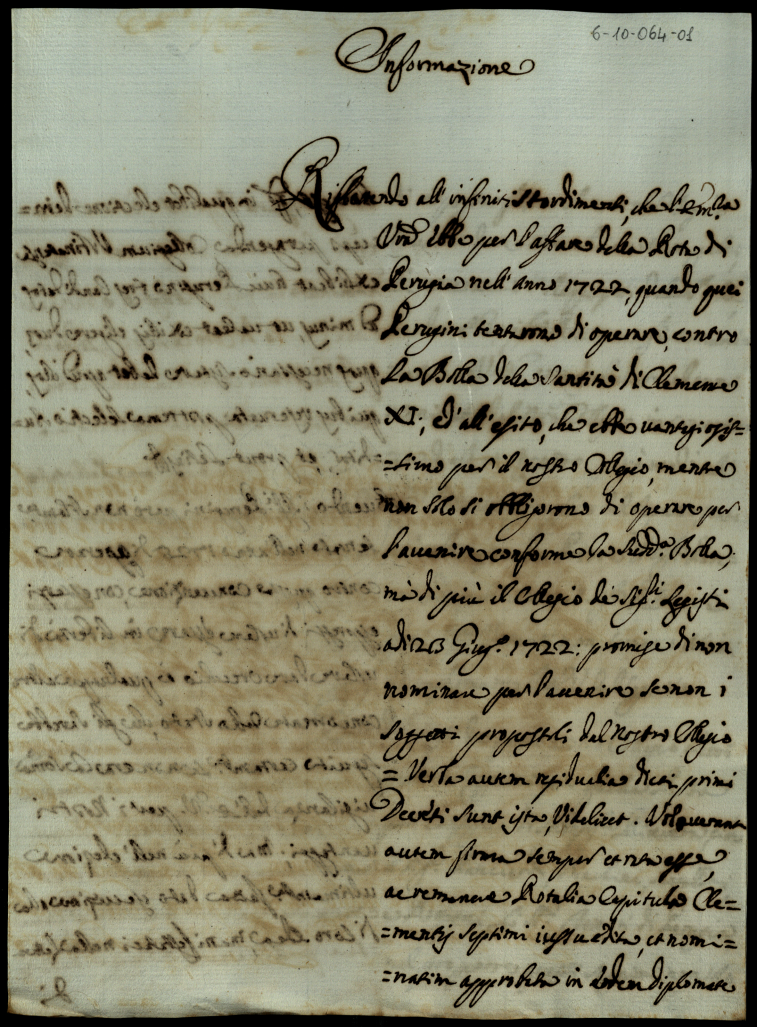 6-10-064-01
Informazione
Riflettendo all' infiniti stordimenti, che l'Em.ma
Vrã ebbe per l'affare della Rota di
Perugia nell' anno 1722, quando quei
Perugini tentarono di operare contro
La Bolla della Santità di Clemente
XI:, ed all' esito, che ebbe vantagiosis=
=simo per il nostro Collegio, mentre
non solo si obbligorono di operare per
l'auenire conforme la sudd.a Bolla,
mà di più il Collegio de Sig.ri Legisti
adi 23 Giug.o 1722: promise di non
nominare per l'auenire se non i
soggetti propostili dal Nostro Collegio
= Verba autem residualia dicti primi
Decreti sunt ista, Videlicet. Voluerunt
autem firma semper et rata esse,
ac remanere Rotalia Capitula Cle=
=mentis septimi iussu edita, et nomi=
=natim approbata in eodem diplomate